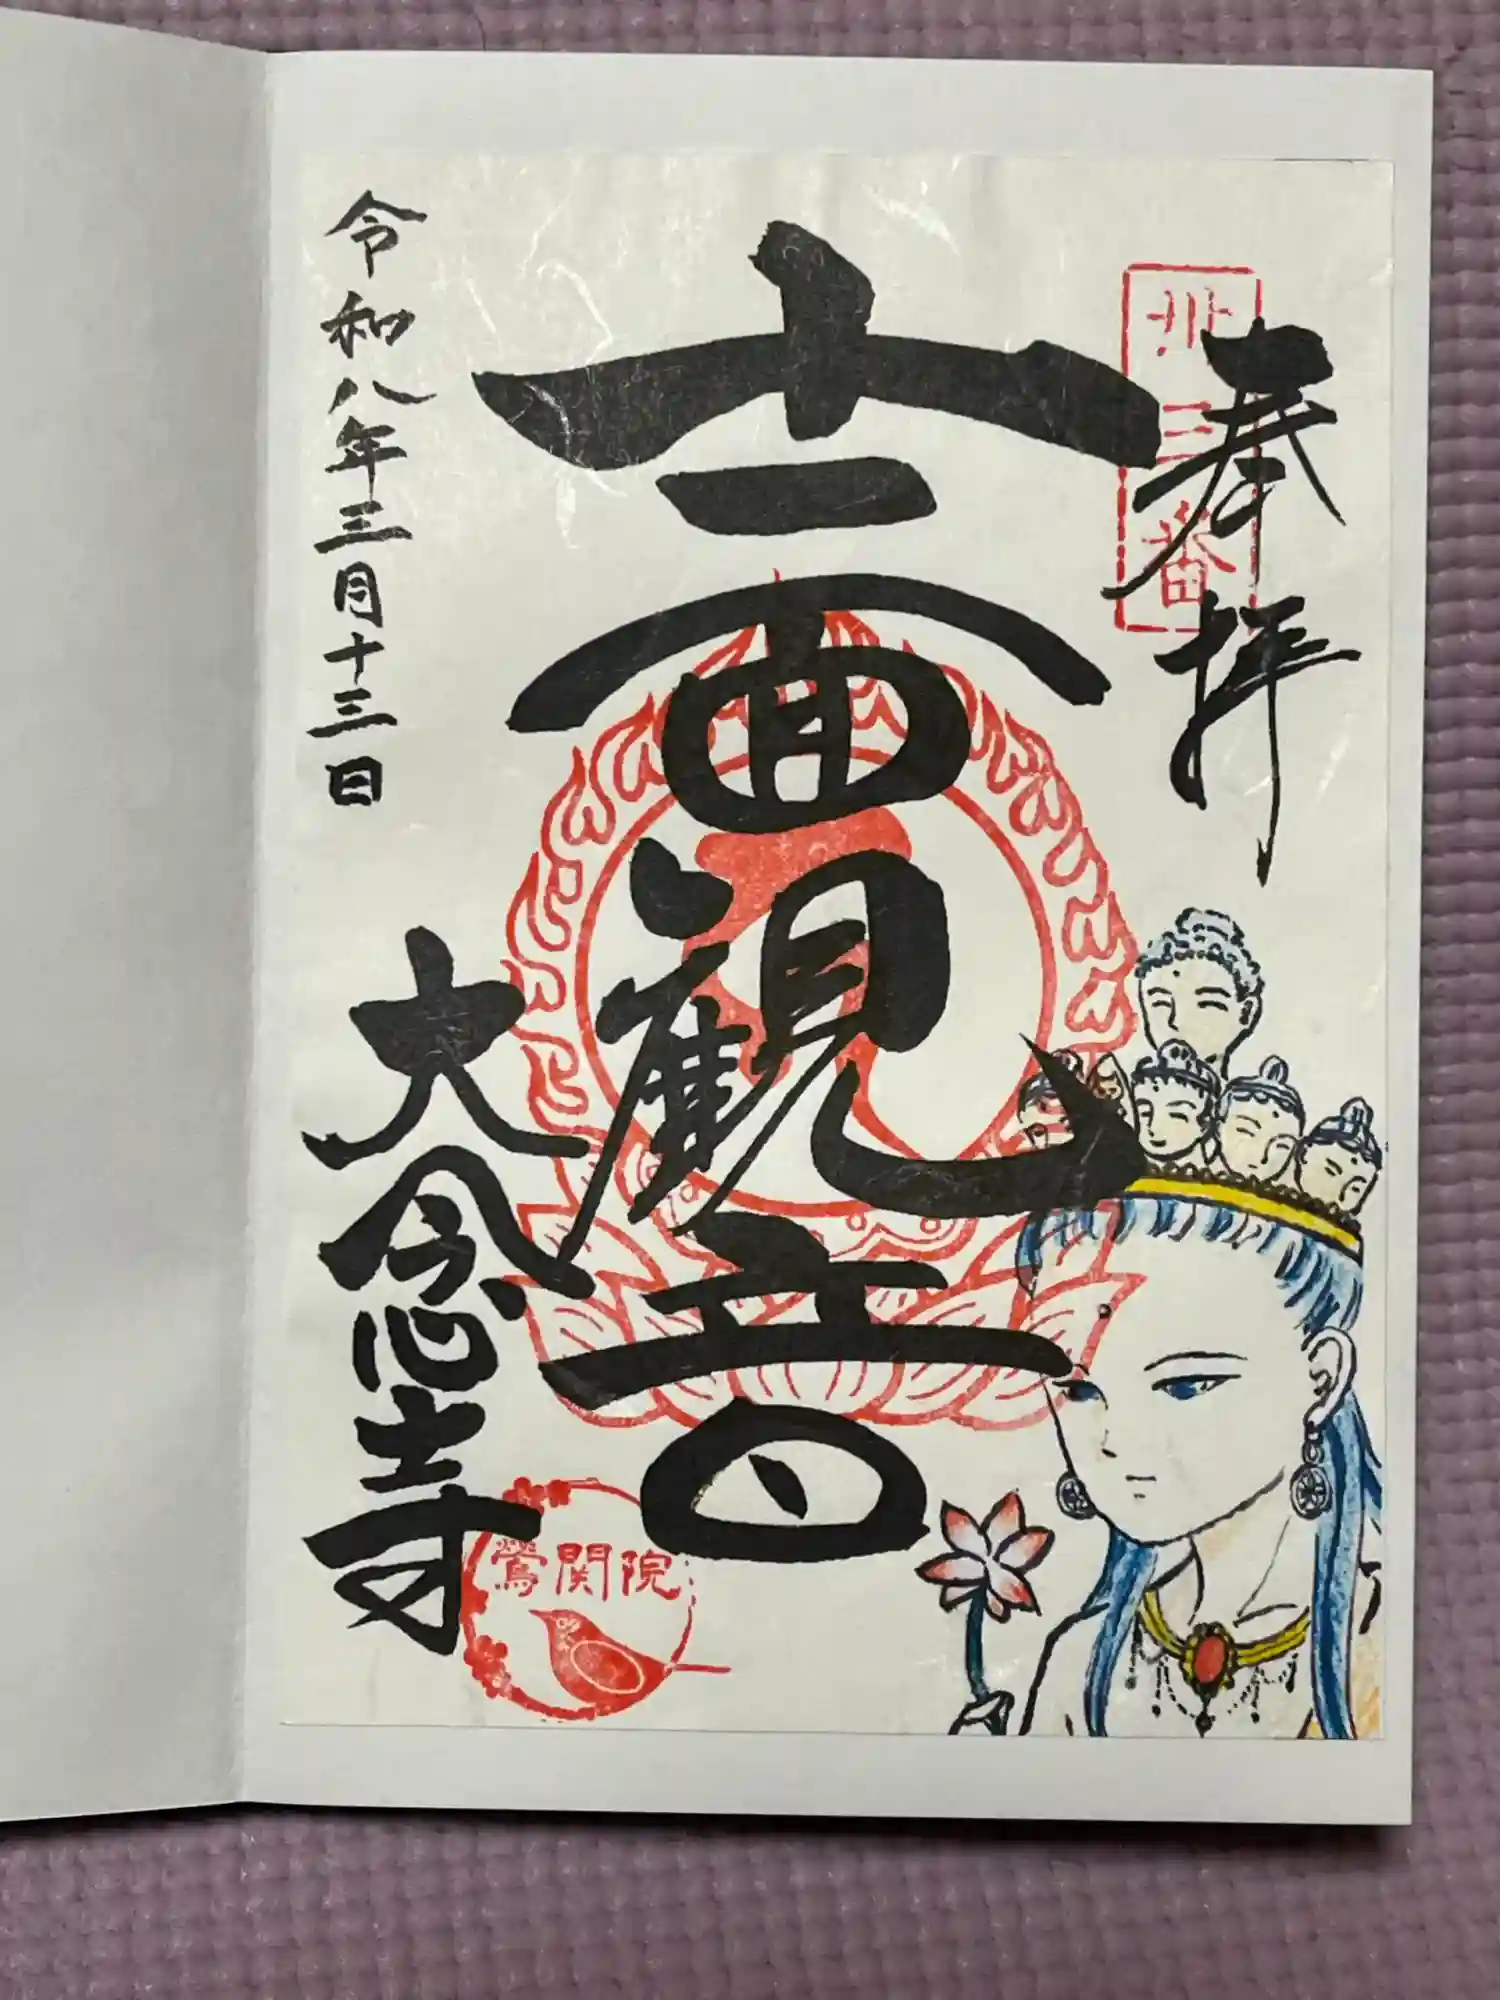 奉拝
卅三番
十一面観音
令和八年三月十三日
大念寺
鶯関院